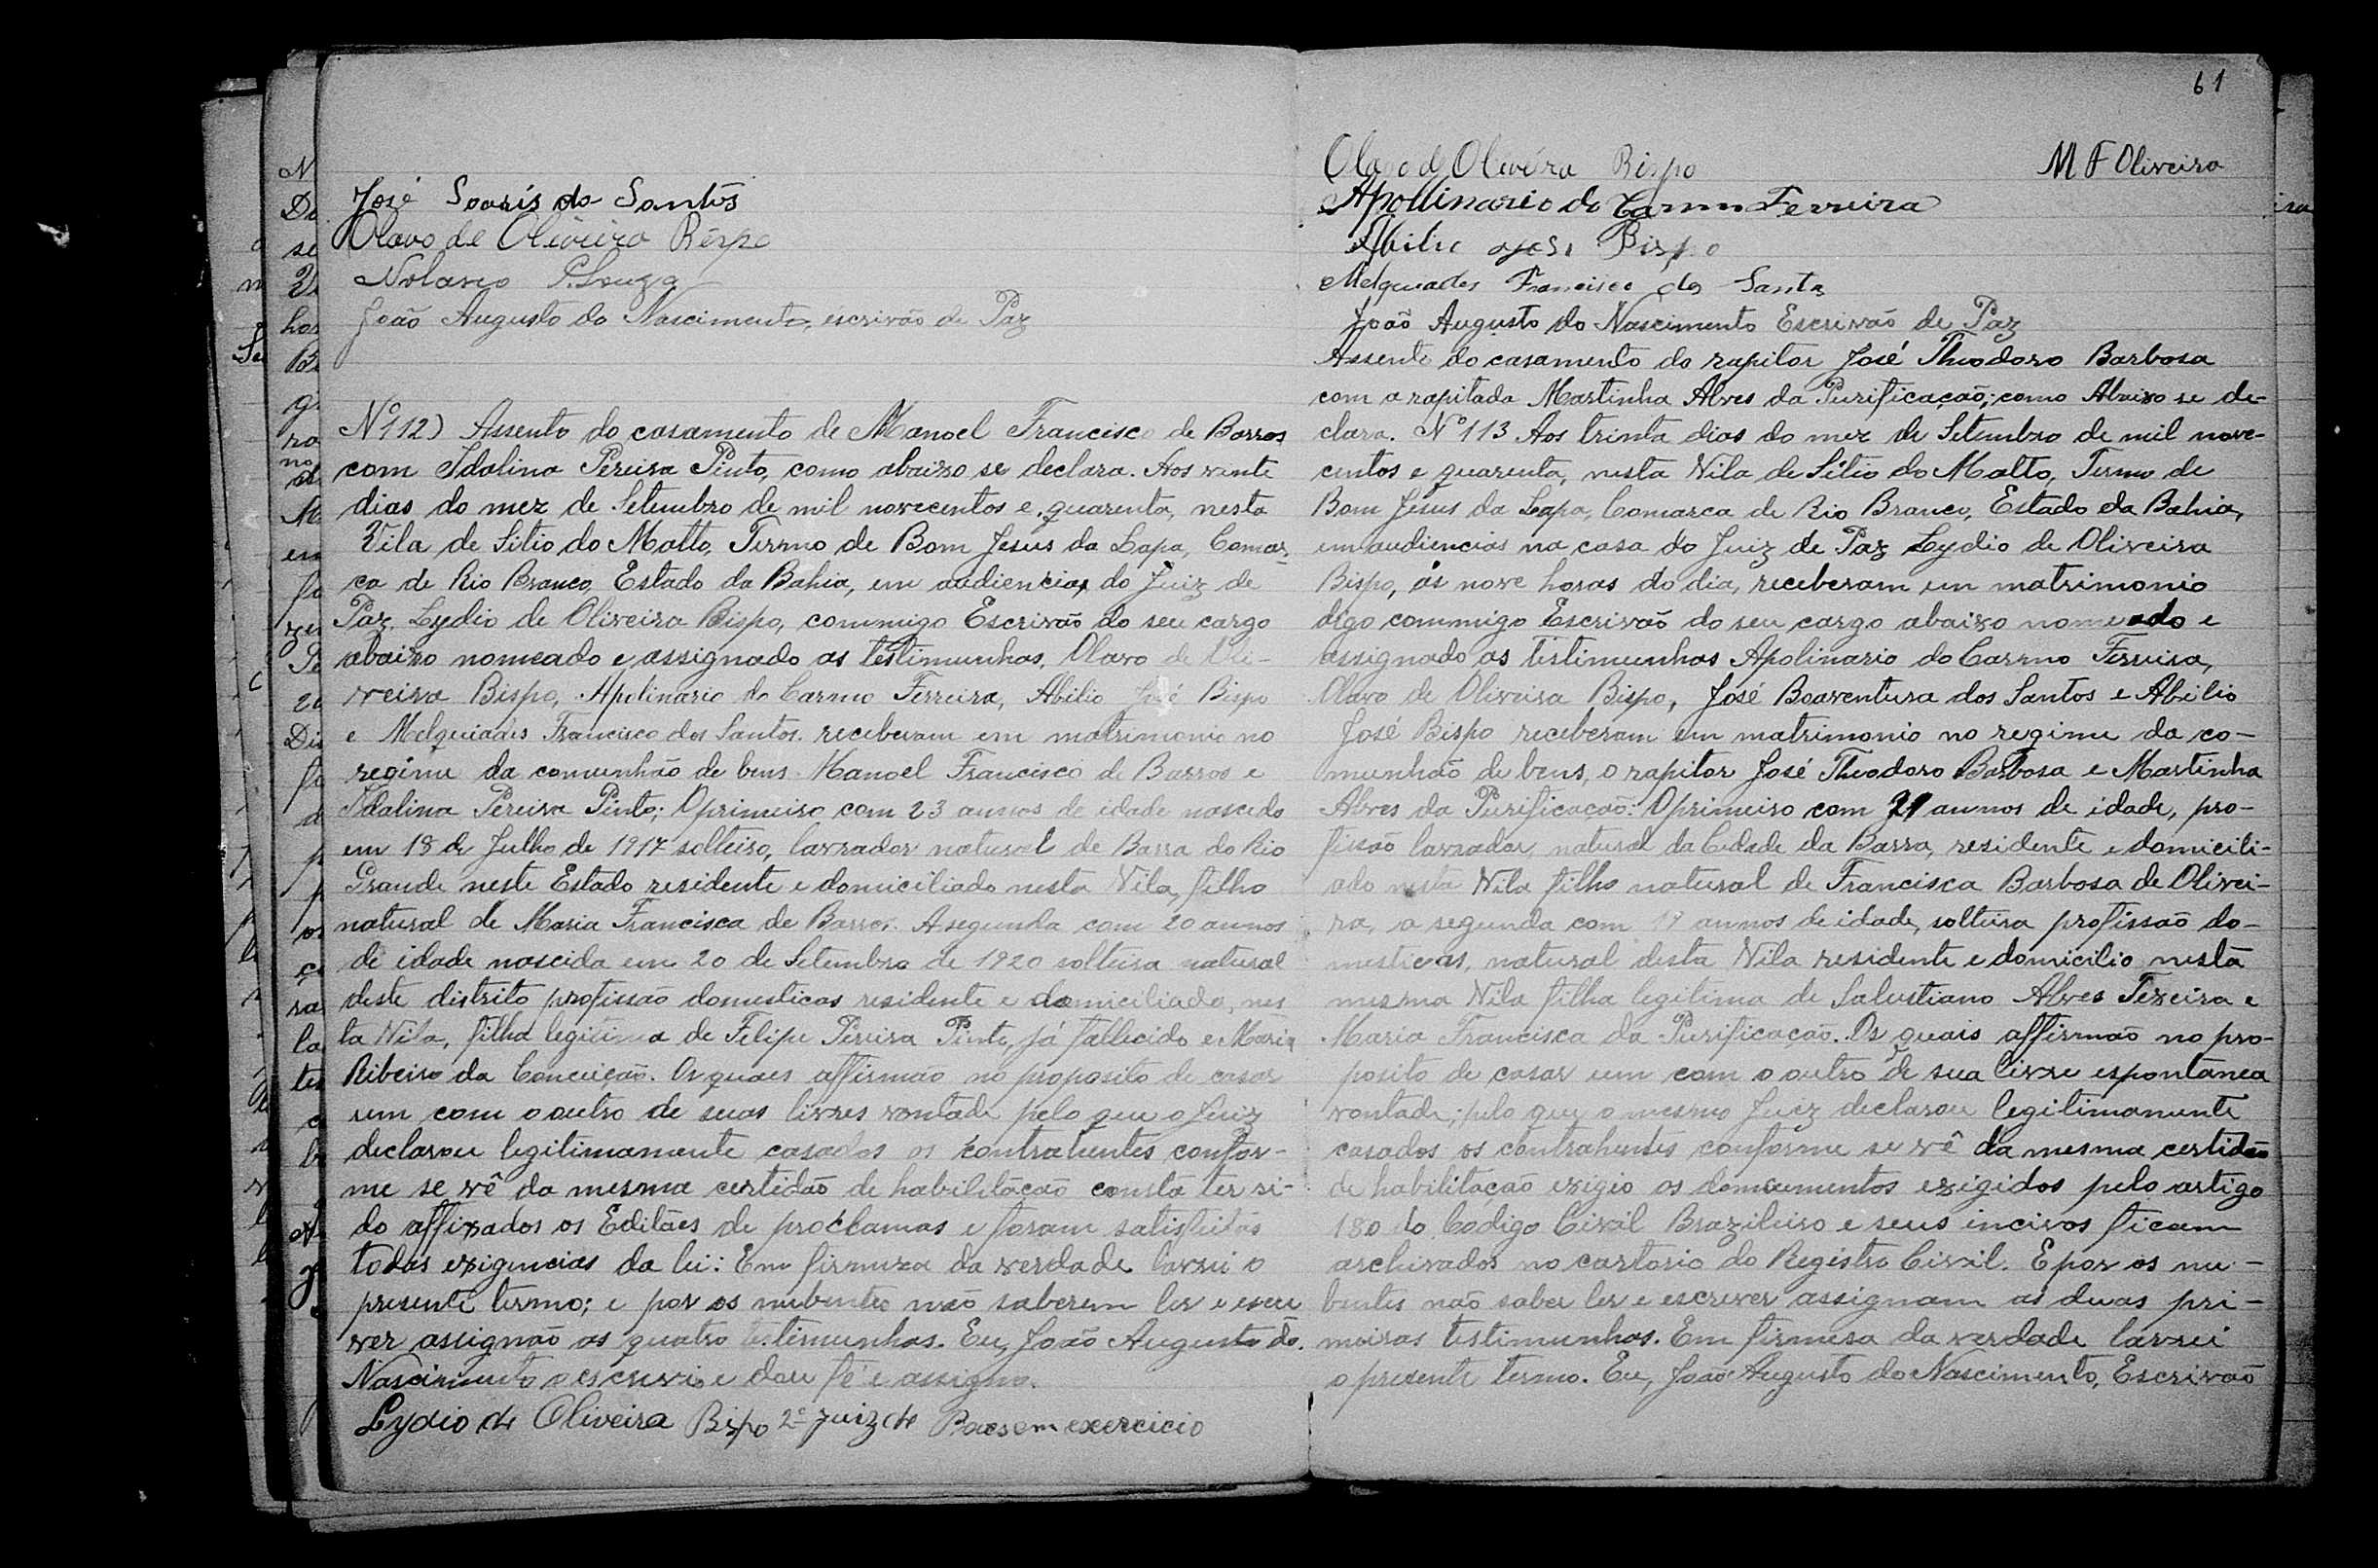 José Soarís do Santos
Olavo de Oliveira Bispo
Nolasco P. Souza
João Augusto do Nascimento, escrivão de Paz
Nº 112) Assento do casamento de Manoel Francisco de Barros
com Idalina Pereira Pinto, como abaixo se declara. Aos vinte
dias do mez de Setembro de mil novecentos e quarenta, nesta
Vila de Sitio do Matto, Termo de Bom Jesus da Lapa, Comar-
ca de Rio Branco, Estado da Bahia, em audiencias do Juiz de
Paz, Lydio de Oliveira Bispo, commigo Escrivão do seu cargo
abaixo nomeado e assignado as testimunhas, Olavo de Oli-
veira Bispo, Apolinario do Carmo Ferreira, Abilio José Bispo
e Melquiadés Francisco dos Santos. receberam em matrimonio no
regime da comunhão de bens Manoel Francisco de Barros e
Idalina Pereira Pinto; O primeiro com 23 annos de idade nascido
em 18 de Julho de 1917 solteiro, lavrador natural de Barra do Rio
Grande neste Estado residente e domiciliado nesta Vila, filho
natural de Maria Francisca de Barros. A segunda com 20 annos
de idade nascida em 20 de Setembro de 1920 solteira natural
deste distrito profissão domesticas residente e domiciliada, nes
ta Vila, filha legitima de Felipe Pereira Pinto, já fallecido e Maria
Ribeiro da Conceição. Os quaes affirmão no proposito de casar
um com o outro de suas livres vontade pelo que o Juiz
declarou legitimamente casados os contrahentes confor-
me se vê da mesma certidão de habilitação consta ter si-
do affixados os Editães de proclamas e foram satisfeitas
todas exigencias da lei: Em firmeza da verdade lavrei o
presente termo; e por os nubentes não saberem ler e escre
ver assignão as quatro testimunhas. Eu, João Augusto do
Nascimento o escrevi e dou fé e assigno.
Lydio de Oliveira Bispo 2º Juiz de Paes em exercicio
61
Olavo de Oliveira Bispo M F Oliveira
Apollinario do Carmo Ferreira
Abilio José Bispo
Melquiades Francisco dos Santos
João Augusto do Nascimento Escrivão de Paz
Assento do casamento do rapitor José Theodoro Barbosa
com a rapitada Martinha Alves da Purificação; como Abaixo se de-
clara. Nº 113 Aos trinta dias do mez de Setembro de mil nove-
centos e quarenta, nesta Vila de Sitio do Matto, Termo de
Bom Jesus da Lapa, Comarca de Rio Branco, Estado da Bahia,
em audiencias na casa do Juiz de Paz Lydio de Oliveira
Bispo, ás nove horas do dia, receberam em matrimonio
digo commigo Escrivão do seu cargo abaixo nomeado e
assignado as testimunhas Apolinario do Carmo Ferreira,
Olavo de Oliveira Bispo, José Boaventura dos Santos e Abilio
José Bispo receberam em matrimonio no regime da co-
munhão de bens, o rapitor José Theodoro Barbosa e Martinha
Alves da Purificação: O primeiro com 21 annos de idade, pro-
fissão lavrador, natural da Cidade da Barra, residente e domicili-
ado nesta Vila filho natural de Francisca Barbosa de Olivei-
ra, a segunda com annos de idade, solteira profissão do-
mesticas, natural desta Vila residente e domicilio nesta
mesma Vila filha legitima de Salustiano Alves Texeira e
Maria Francisca da Purificação. Os quais affirmão no pro-
posito de casar um com o outro de sua livre espontanea
vontade; pelo que o mesmo Juiz declarou legitimamente
casados os contrahentes conforme se vê da mesma certidão
de habilitação exigio os domcumentos exigidos pelo artigo
180 do Código Civil Brazileiro e seus incivos ficam
archivados no cartorio do Registro Civil. E por os nu-
bentes não saber ler e escrever assignam as duas pri-
meiras testimunhas. Em firmesa da verdade lavrei
o presente termo. Eu, João Augusto do Nascimento, Escrivão